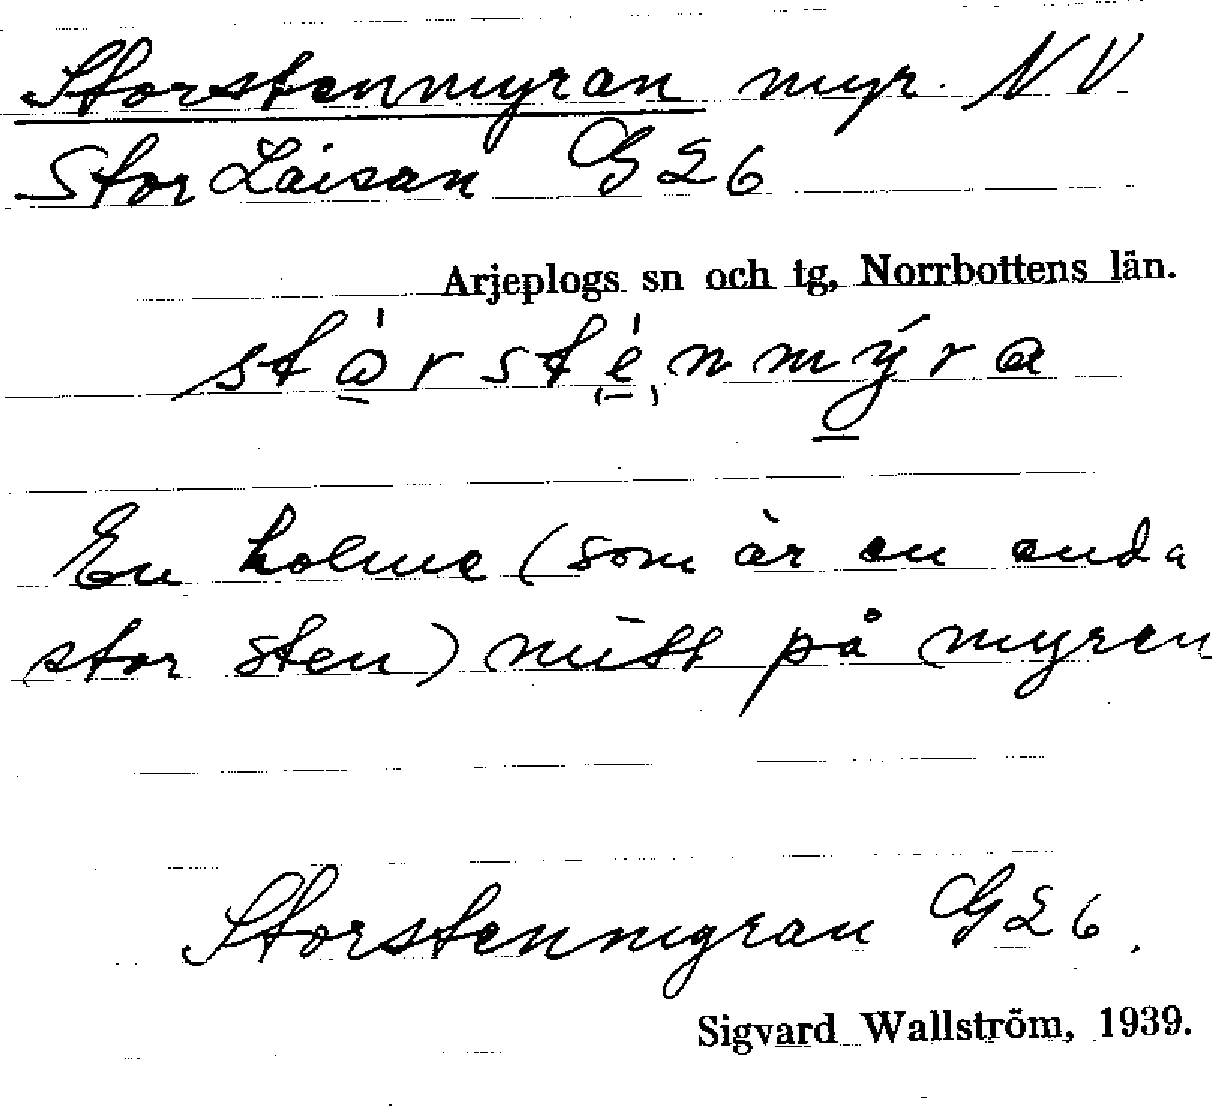 Storstenmyran myr. NV.
Stor Laisan G 26
Arjeplogs sn och tg, Norrbottens län.
En holme (som är en enda
stor sten) mitt på myren
Storstenmyran G 26.
Sigvard Wallström, 1939.